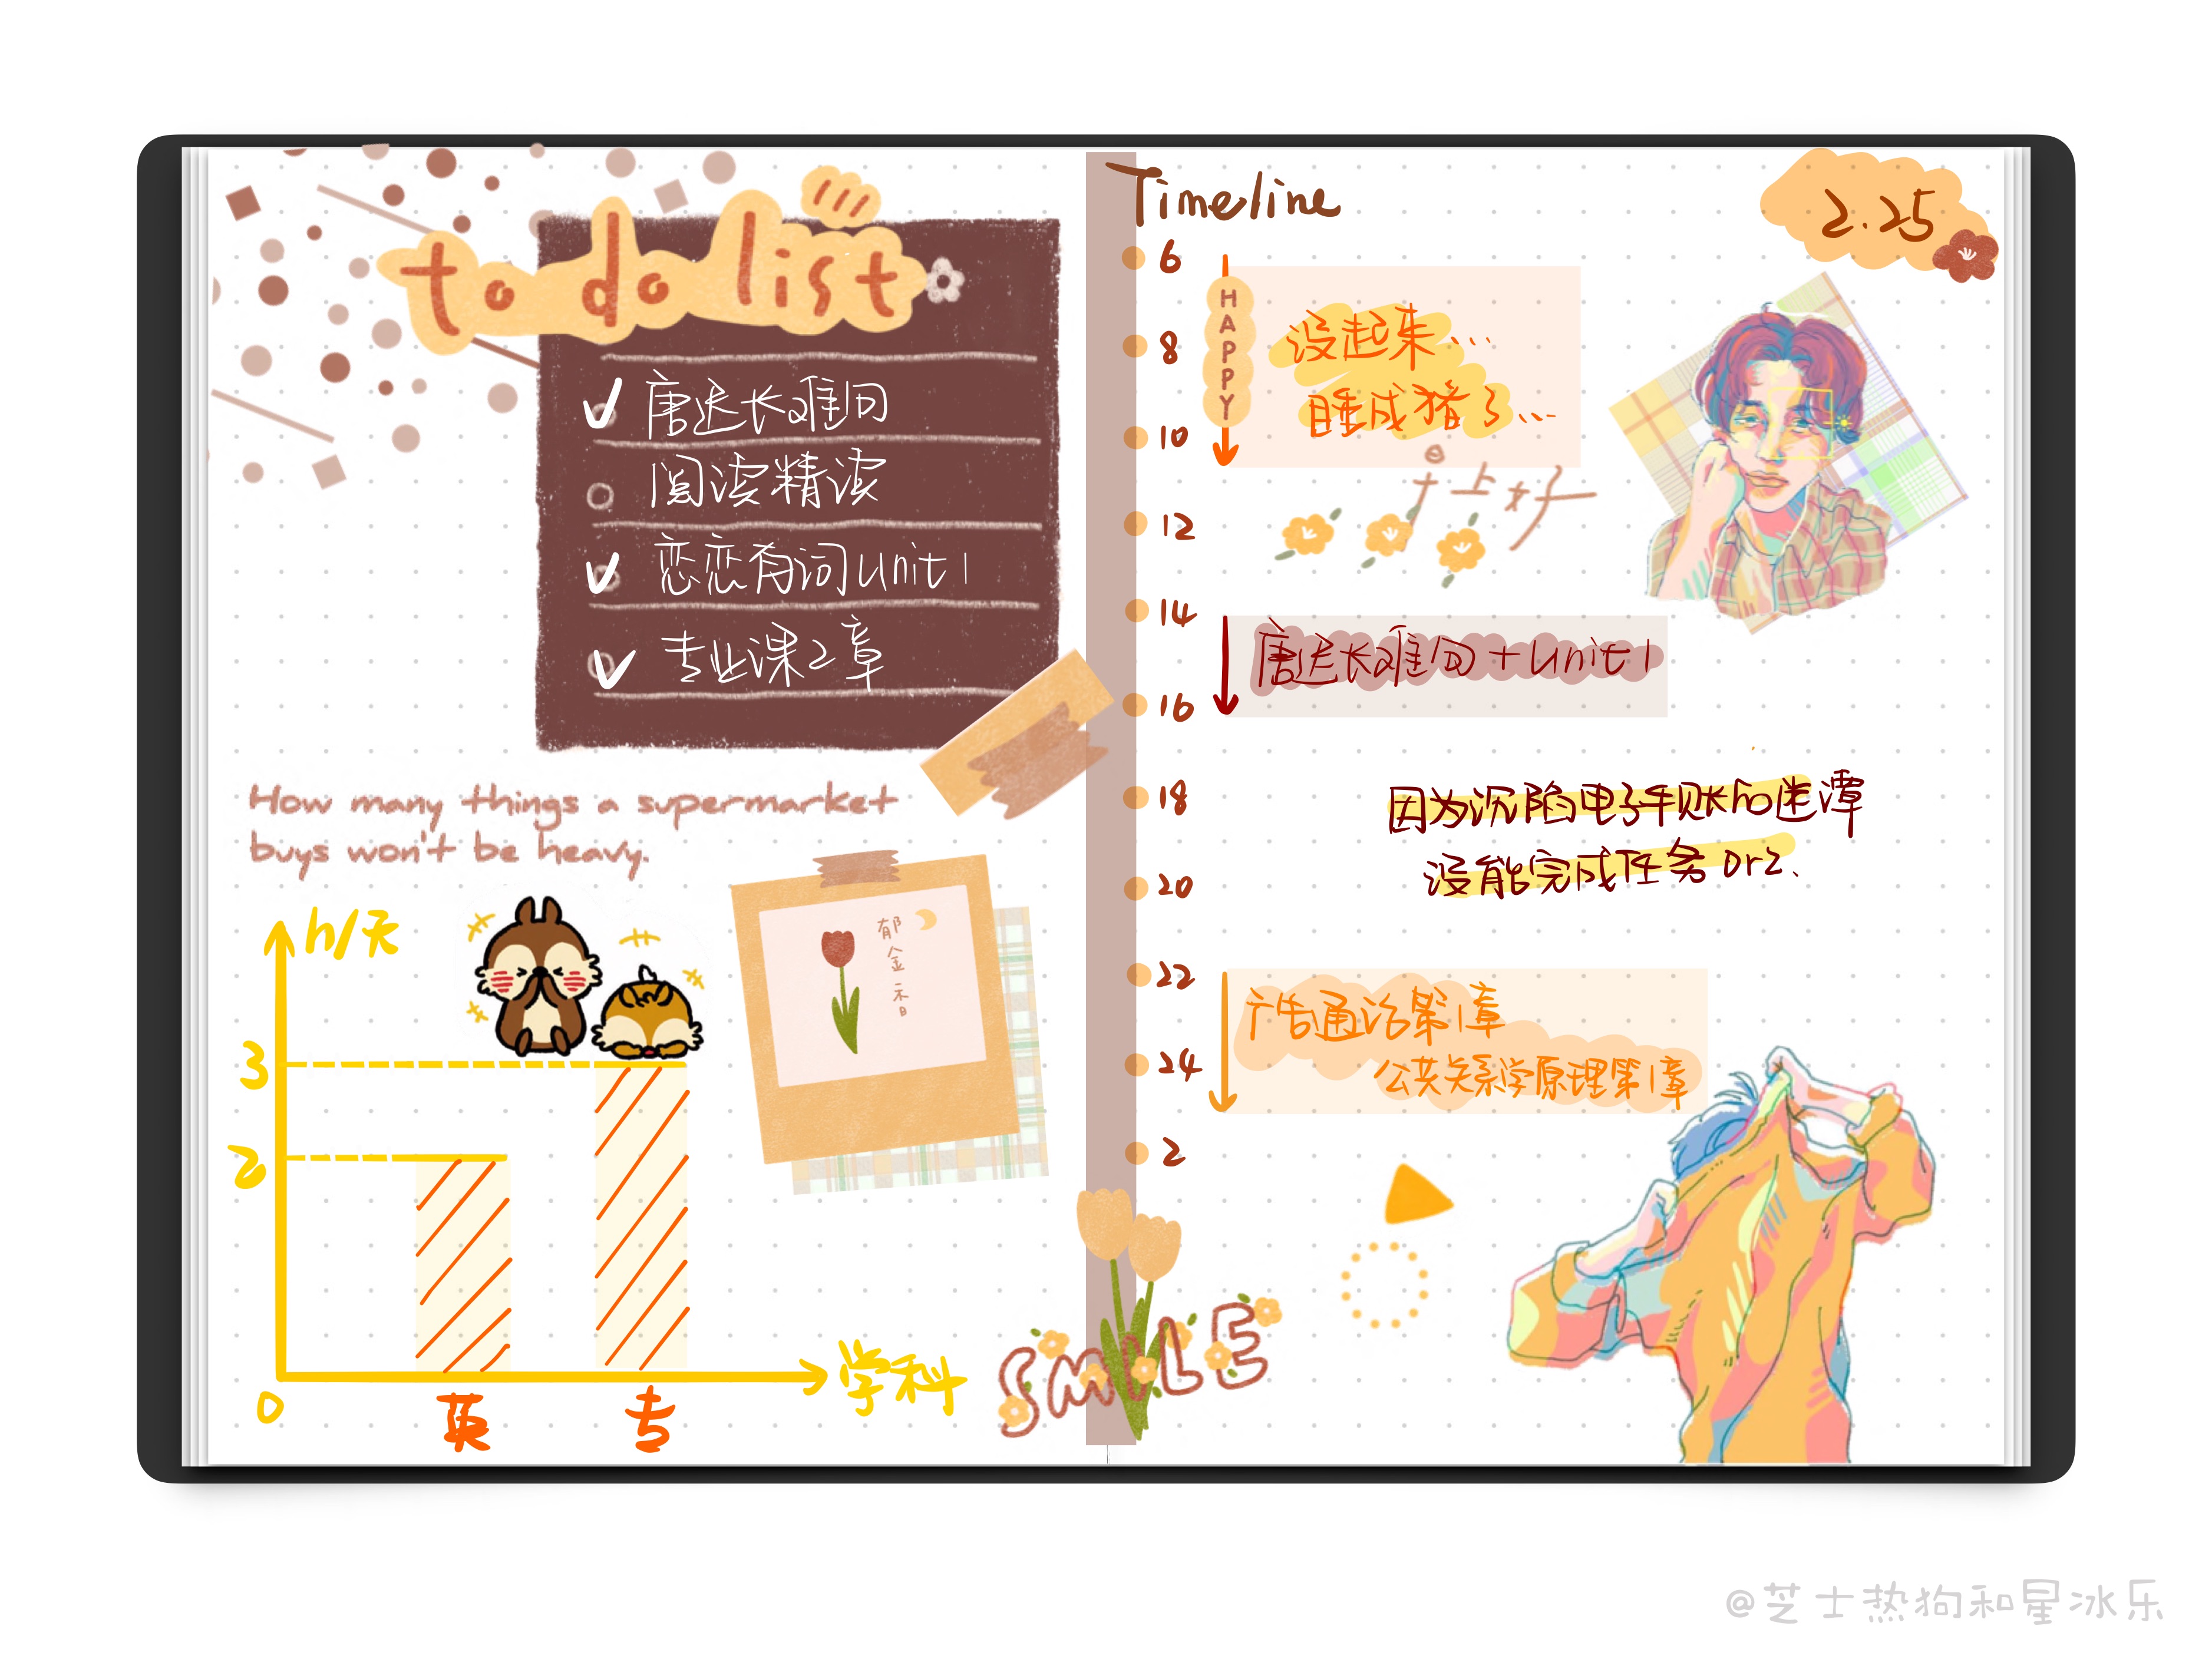 to do list
唐迟长难句
阅读精读
恋恋有词unit1
专业课2章
How many things a supermarket
buys won't be heavy.
h/天
3
2
0
英
专
学科
郁金香
SMILE
Timeline
2.25
6
8
10
12
14
16
18
20
22
24
2
HAPPY
没起来...
睡成猪了...
早上好
唐迟长难句+unit1
因为沉陷电子手账的迷潭
没能完成任务orz、
广告通论第1章
公共关系学原理第1章
@芝士热狗和星冰乐